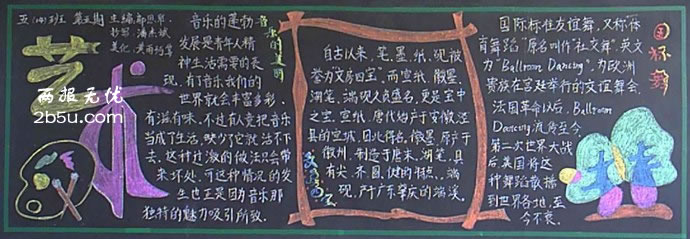 五(四)班 第五期
主编
抄写
美化
艺术
两报无忧
2b5u.com
音乐的美丽
音乐的蓬勃
发展是青年人精
神生活需要的表
现,有了音乐我们的
世界就会丰富多彩、
有滋有味,不过有人竟把音乐
当成了生活,缺少它就活不下
去,这种过激的做法只会带
来坏处,可这种情况的发
生也正是因为音乐那
独特的魅力吸引所致.
自古以来,笔、墨、纸、砚被
誉为文房四宝,而宣纸、徽墨、
湖笔、端砚人贞盛名,更是宝中
之宝,宣纸,唐代始产于安徽泾
县的宣城,因此得名,徽墨,原产于
徽州,制造于唐末,湖笔,具
有尖、齐、圆、健的特点,端
砚,产于广东肇庆的端溪.
文房四宝
国标舞
国际标准友谊舞,又称"体
育舞蹈"原名叫作"社交舞",英文
为"Ballroom Dancing",为欧洲
贵族在宫廷举行的交谊舞会.
法国革命以后,Ballroom
Dancing流传至今
第一次世界大战
后,美国将这
种舞蹈散播
到世界各地,至
今不衰.